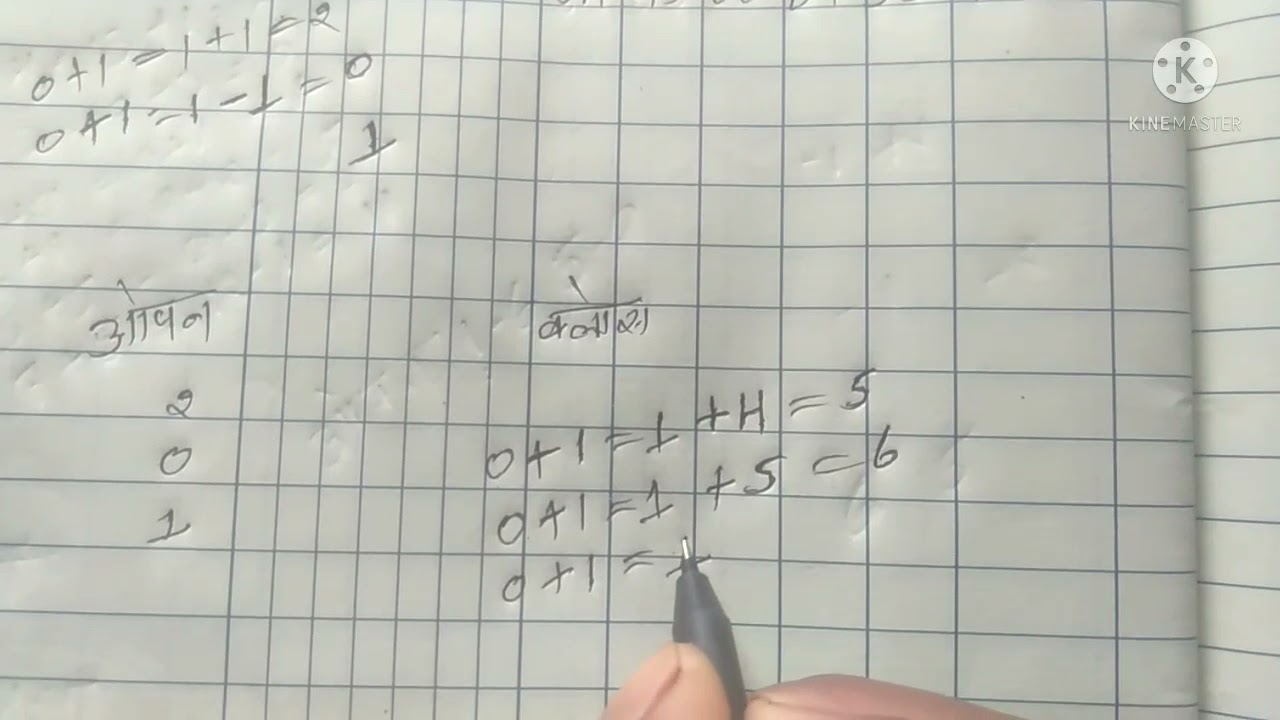 0+1=1+1=2
0+1=1-1=0
1
ओपन
क्लोज
2
0
1
0+1=1+4=5
0+1=1+5=6
0+1=1
KINEMASTER